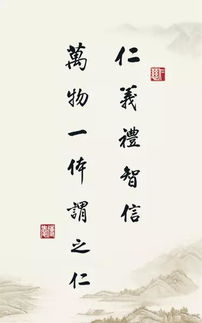 仁義禮智信
萬物一体謂之仁